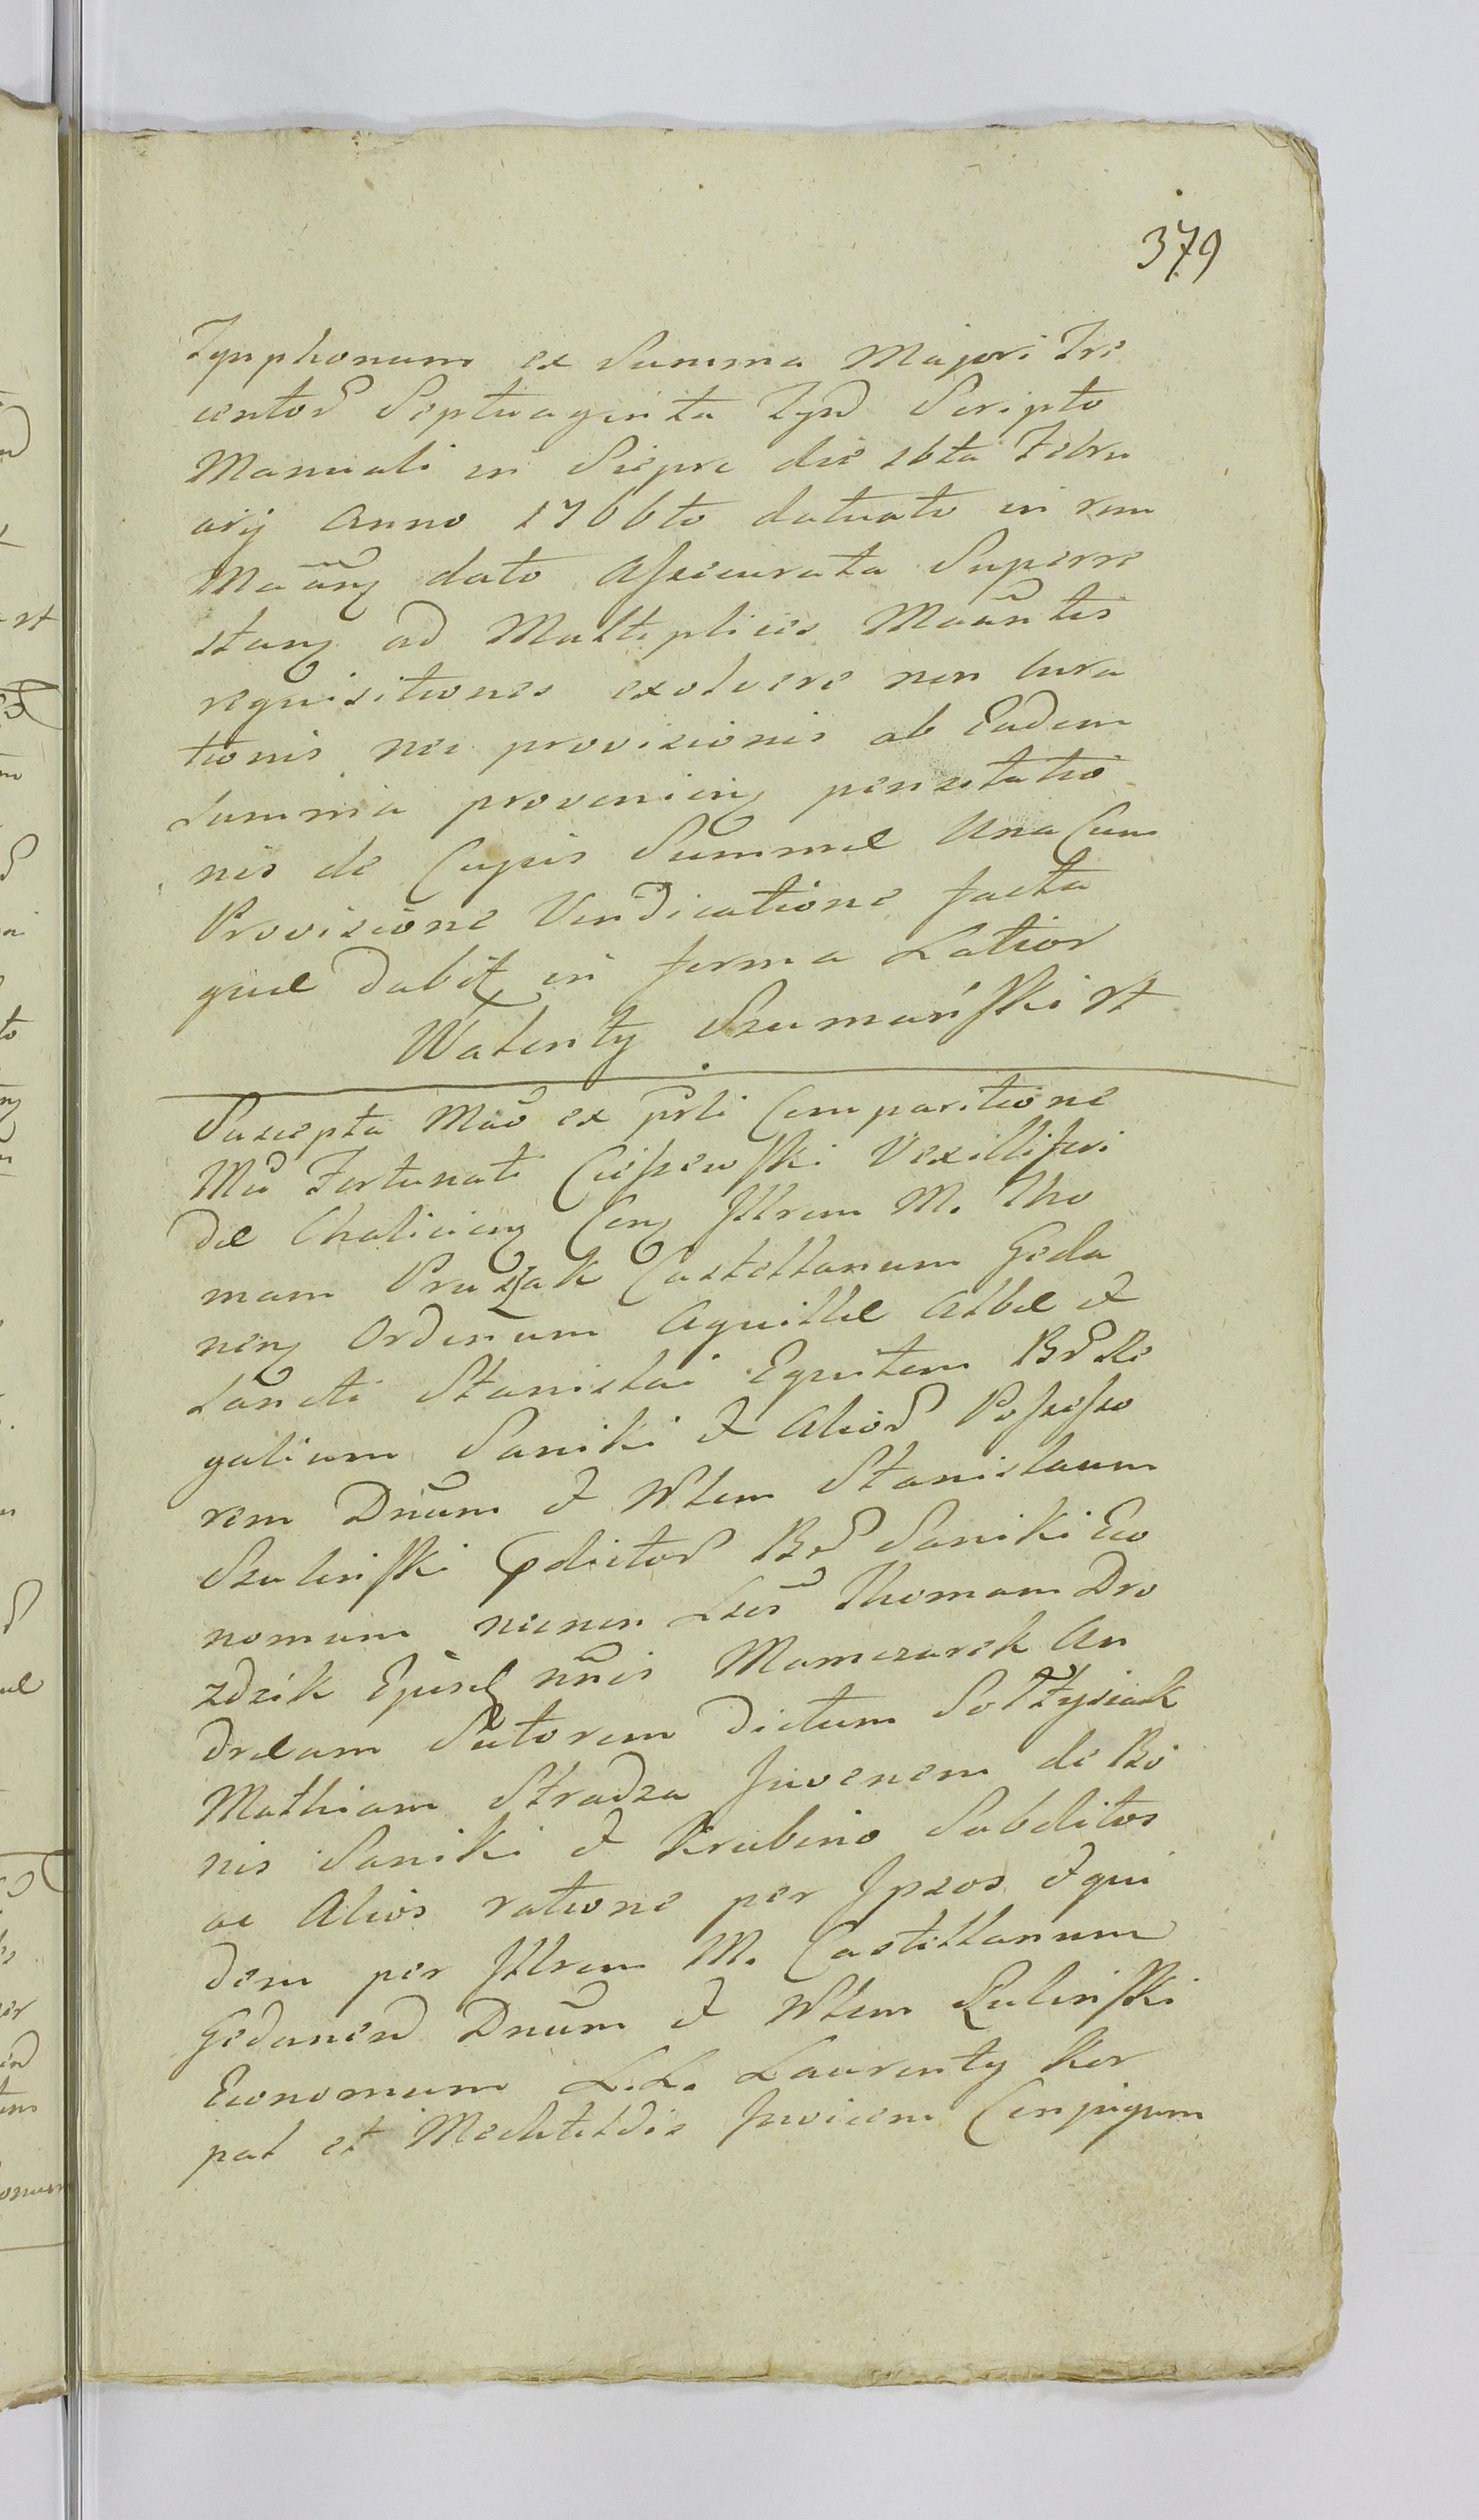 379
Tynphonum ex Summa Majori Tre
centor Septuaginta Tyn Scripto
Manuali in Siepra die 16ta Febru
arij Anno 1766to datuato in rem
Maan dato Assecurata Superre
stan ad Multiplices Maantis
requisitiones exolvere non Cura
tionis nec provisionis ab Eadem
Summa provenien pensitatio
nis de Cujus Summæ Una Cum
Provisione Vendicatione facta
quæ dabit in forma Latior
Walenty Szumański st
Suscepta Mao ex prti Comparitione
Mci Fortunati Ciessewski Vexilliferi
dæ Chalicien Con Illrem M. Tho
mam Pruszak Castellanum Geda
nen Ordinum Aquillæ Albæ et
Sancti Stanislai Equitem Br Re
galium Saniki et Alior Possesso
rem Dnum et Wlem Stanislaum
Szulinski pdictor Br Saniki Eco
nomum necnon Lres Thomam Dro
zdzik Ejusq nnis Mamczarek An
dræam Sutorem dictum Sołtysiak
Mathiam Stradza Juvenem de Bo
nis Saniki et Krubino Subditos
ac Alios ratione per Ipsos et qui
dem per Illrem M. Castellanum
Gedanen Dnum et Wlem Sulinski
Economum L.L. Laurenty Kor
pal et Mechtildis Invicem Conjugum